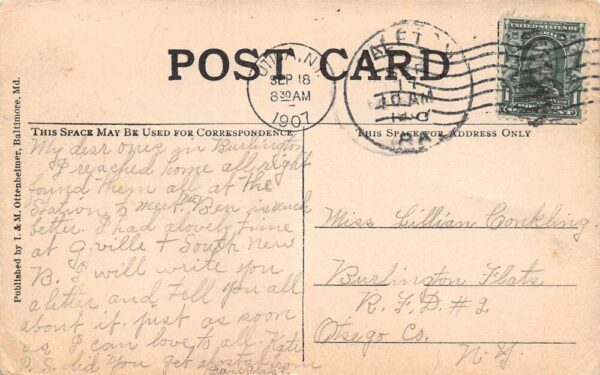 POST CARD
UTICA, N.Y.
SEP 18
8 30 AM
1907
GALETON
17
10 AM
190
PA.
1
THIS SPACE MAY BE USED FOR CORRESPONDENCE
THIS SPACE FOR ADDRESS ONLY
Published by I. & M. Ottenheimer, Baltimore, Md.
My dear ones in Burlington
I reached home all right
found them all at the
Station to meet me Ben is much
better. I had a lovely time
at G.ville + South New
B. I will write you
a letter and tell you all
about it just as soon
as I can love to all. Kate
P.S. did you get a postal from
Miss Lillian Conkling.
Burlington Flats
R.F.D. #2
Otsego Co.
N.Y.